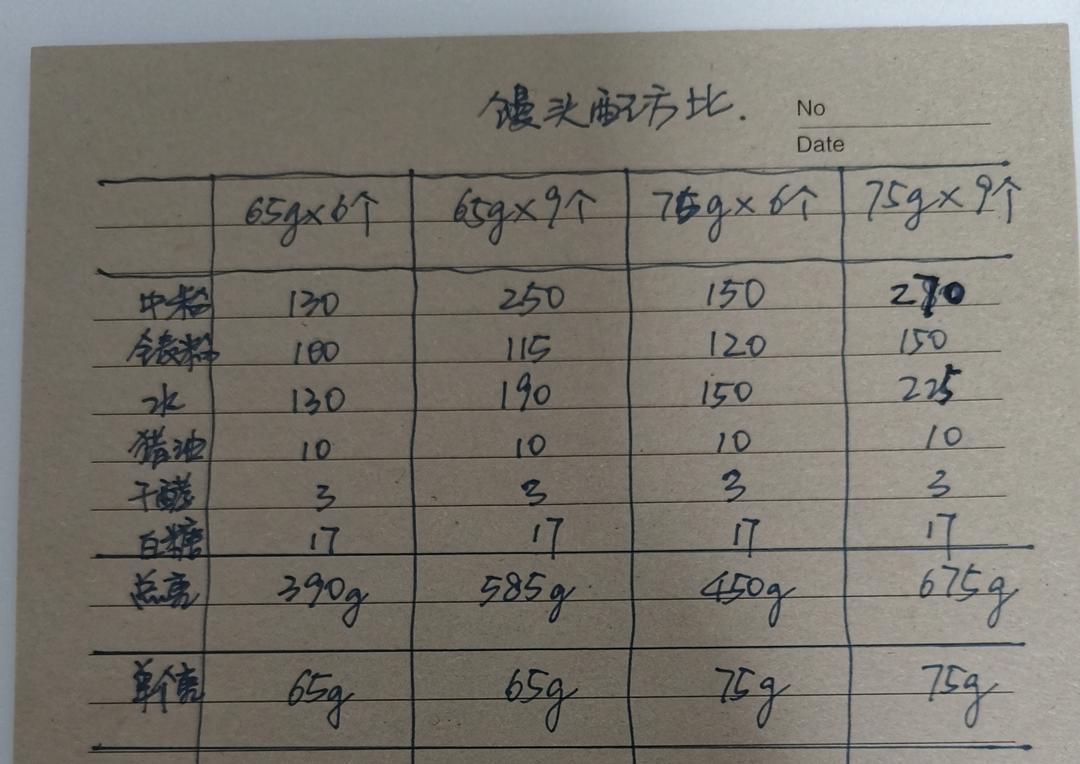 馒头配方比.
No
Date
65g×6个 65g×9个 75g×6个 75g×9个
中粉 130 250 150 270
全麦粉 100 115 120 150
水 130 190 150 225
猪油 10 10 10 10
干酵 3 3 3 3
白糖 17 17 17 17
总克 390g 585g 450g 675g
单个克 65g 65g 75g 75g